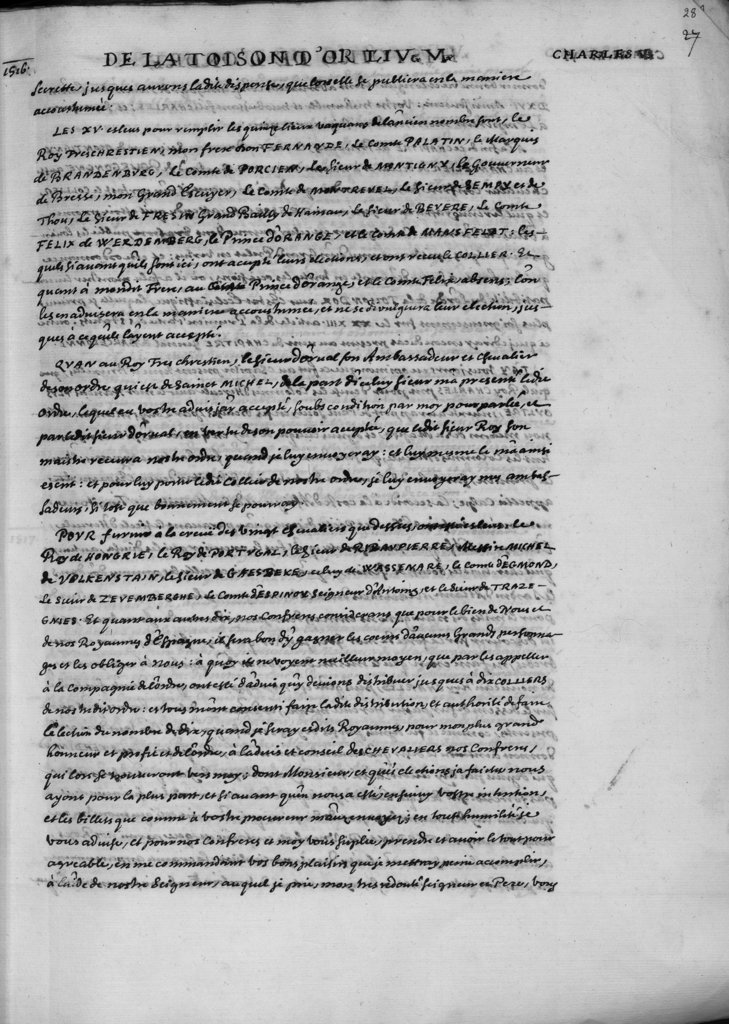 28
27
DE LA TOISON D'OR LIV. V.
CHARLES V.
1516.
secrette, jusques aurons ladite dispense, que lors elle se publiera en la maniere
accoustumée.
LES XV esleus pour remplir les quinze lieux vaquans de l'ancien nombre sont, le
Roy Treschrestien, mon frere Don FERNANDE, le Comte PALATIN, le Marquis
de BRANDENBURG, le Comte de PORCIEN, le Sieur de MONTIGNY, le Gouverneur
de Bresse, mon Grand Escuyer, le Comte de MONTREVEL, le Sieur de SEMPY et de
Thou, le Sieur de FRESIN Grand Bailly de Hainau, le Sieur de BEVERE, le Comte
FELIX de WERDEMBERG, le Prince d'ORANGE, et le Comte de MANSFELDT: les-
quels si avant qu'ils sont ici, ont accepté leurs elections, et ont receu le COLLIER. Et
quant à mondit Frere, au Prince d'Orange, et le Comte Felix, absens, l'on
les en advisera en la maniere accoustumée, et ne se divulguera leur election, jus-
ques à ce qu'ils l'ayent accepté.
QVAN au Roy Tres chrestien, le Sieur d'Orval son Ambassadeur et Chevalier
de son ordre, qui est de Sainct MICHEL, de la part d'iceluy sieur m'a presenté ledit
Ordre, lequel au vostre advis j'ay accepté, soubs condition par moy pourparlée, et
par ledit sieur d'Orval, en vertu de son pouvoir acceptée, que ledit sieur Roy son
maistre recevra nostre ordre, quand je luy envoyeray: et luy mesme le m'a ainsi
escrit: et pour luy porter ledit Collier de nostre ordre, je luy envoyeray mes ambas-
sadeurs, si tost que bonnement se pourra.
POVR furnir à la creuë des vingt Chevaliers que dessus, le
Roy de HONGRIE, le Roy de PORTVGAL, le Sieur de RIBAVPIERRE, Messire MICHEL
de VOLKENSTAIN, le Sieur de GAESBEKE, celuy de WASSENARE, le Comte d'EGMOND,
le Sieur de ZEVEMBERGHE, le Comte d'ESPINOY Seigneur d'Antoing, et le Sieur de TRAZE-
GNIES. Et quant aux autres dix, nos Confreres considerans que pour le bien de Nous et
de nos Royaumes d'Espagne, il sera bon d'y gagner les coeurs d'aucuns Grands personna-
ges et les obliger à Nous: à quoy ils ne voyent meilleur moyen, que par les appeller
à la Compagnie de l'ordre, ont esté d'advis qu'y devions distribuer jusques à dix COLLIERS
de nostredit ordre: et tous m'ont consenti faire ladite distribution, et authorité de faire
l'election du nombre de dix, quand je seray esdits Royaumes, pour mon plus grand
honneur et profit et de l'ordre, à l'advis et conseil des CHEVALIERS nos Confreres,
qui lors se trouveront vers moy; dont Monsieur, et qu'és elections ja faites nous
ayons pour la plus part, et si avant qu'en nous a esté, ensuivy vostre intention,
et les billets que comme à vostre procureur m'avez envoyez; en toute humilité je
vous advise, et pour nos Confreres et moy vous suplie, prendre et avoir le tout pour
agreable, en me commandant vos bons plaisirs que je mettray peine accomplir,
à l'aide de nostre Seigneur, auquel je prie, mon tres redouté seigneur et Pere, vous